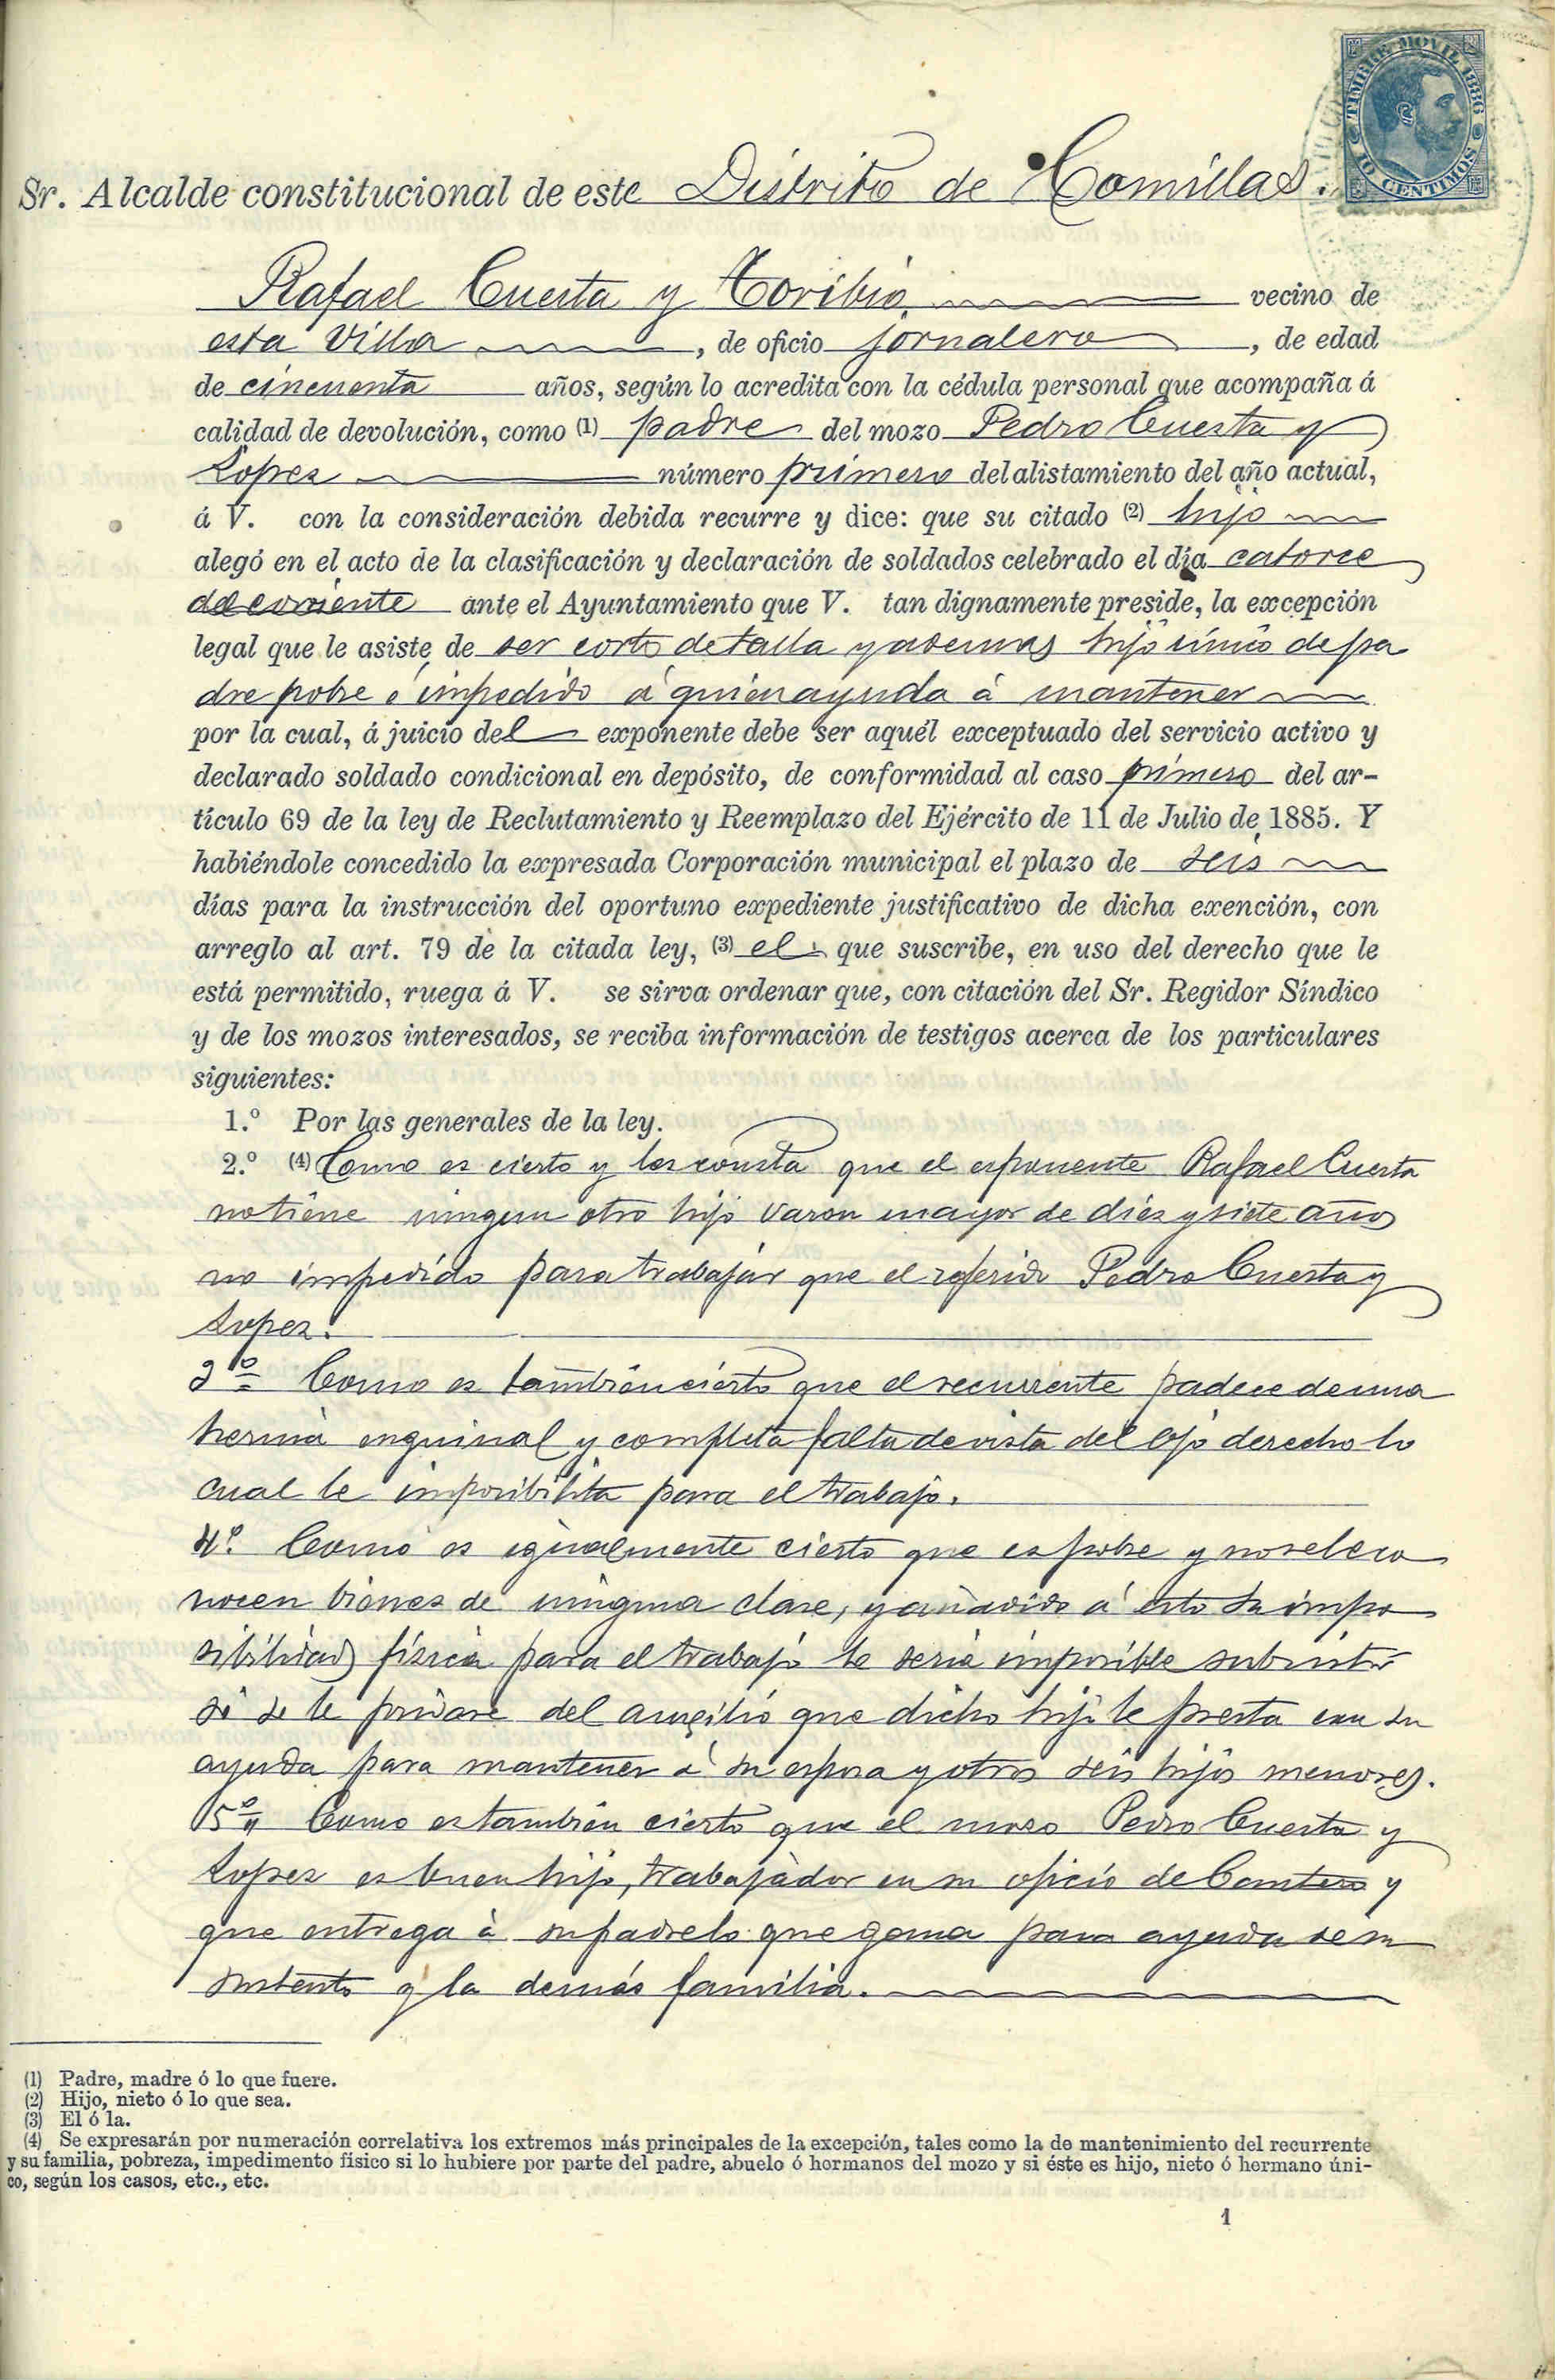 TIMBRE MOVIL 1886
10 CENTIMOS
Sr. Alcalde constitucional de este Distrito de Comillas.
Rafael Cuesta y Toribio vecino de
esta Villa, de oficio jornalero, de edad
de cincuenta años, según lo acredita con la cédula personal que acompaña á
calidad de devolución, como (1) padre del mozo Pedro Cuesta y
Lopez número primero del alistamiento del año actual,
á V. con la consideración debida recurre y dice: que su citado (2) hijo
alegó en el acto de la clasificación y declaración de soldados celebrado el día catorce
del corriente ante el Ayuntamiento que V. tan dignamente preside, la excepción
legal que le asiste de ser corto de talla y ademas hijo único de pa
dre pobre é impedido á quien ayuda á mantener
por la cual, á juicio del exponente debe ser aquél exceptuado del servicio activo y
declarado soldado condicional en depósito, de conformidad al caso primero del ar-
tículo 69 de la ley de Reclutamiento y Reemplazo del Ejército de 11 de Julio de 1885. Y
habiéndole concedido la expresada Corporación municipal el plazo de seis
días para la instrucción del oportuno expediente justificativo de dicha exención, con
arreglo al art. 79 de la citada ley, (3) el que suscribe, en uso del derecho que le
está permitido, ruega á V. se sirva ordenar que, con citación del Sr. Regidor Síndico
y de los mozos interesados, se reciba información de testigos acerca de los particulares
siguientes:
1.º Por las generales de la ley.
2.º (4) Como es cierto y les consta que el esponente Rafael Cuesta
no tiene ningun otro hijo varon mayor de diez y siete años
no impedido para trabajar que el referido Pedro Cuesta y
Lopez.
3º Como es tambien cierto que el recurrente padece de una
hernia enguinal y completa falta de vista del ojo derecho lo
cual le imposibilita para el trabajo.
4º. Como es igualmente cierto que es pobre y no se le co
nocen bienes de ninguna clase, y añadido á esto su impo
sibilidad física para el trabajo le seria imposible subsistir
si se le privase del auxilio que dicho hijo le presta con su
ayuda para mantener á su esposa y otros seis hijos menores.
5º Como es tambien cierto que el mozo Pedro Cuesta y
Lopez es buen hijo, trabajador en su oficio de Cantero y
que entrega á su padre lo que gana para ayuda de su
sustento y la demás familia.
(1) Padre, madre ó lo que fuere.
(2) Hijo, nieto ó lo que sea.
(3) El ó la.
(4) Se expresarán por numeración correlativa los extremos más principales de la excepción, tales como la de mantenimiento del recurrente
y su familia, pobreza, impedimento físico si lo hubiere por parte del padre, abuelo ó hermanos del mozo y si éste es hijo, nieto ó hermano úni-
co, según los casos, etc., etc.
1